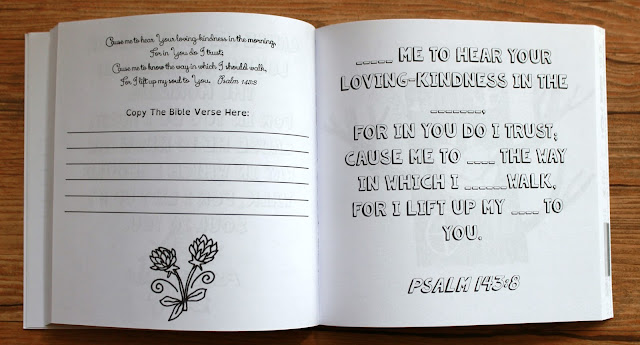 Cause me to hear Your loving-kindness in the morning,
For in You do I trust;
Cause me to know the way in which I should walk,
For I lift up my soul to You. Psalm 143:8
Copy The Bible Verse Here:
_____ ME TO HEAR YOUR
LOVING-KINDNESS IN THE
_______,
FOR IN YOU DO I TRUST;
CAUSE ME TO ____ THE WAY
IN WHICH I ______WALK,
FOR I LIFT UP MY ____ TO
YOU.
PSALM 143:8